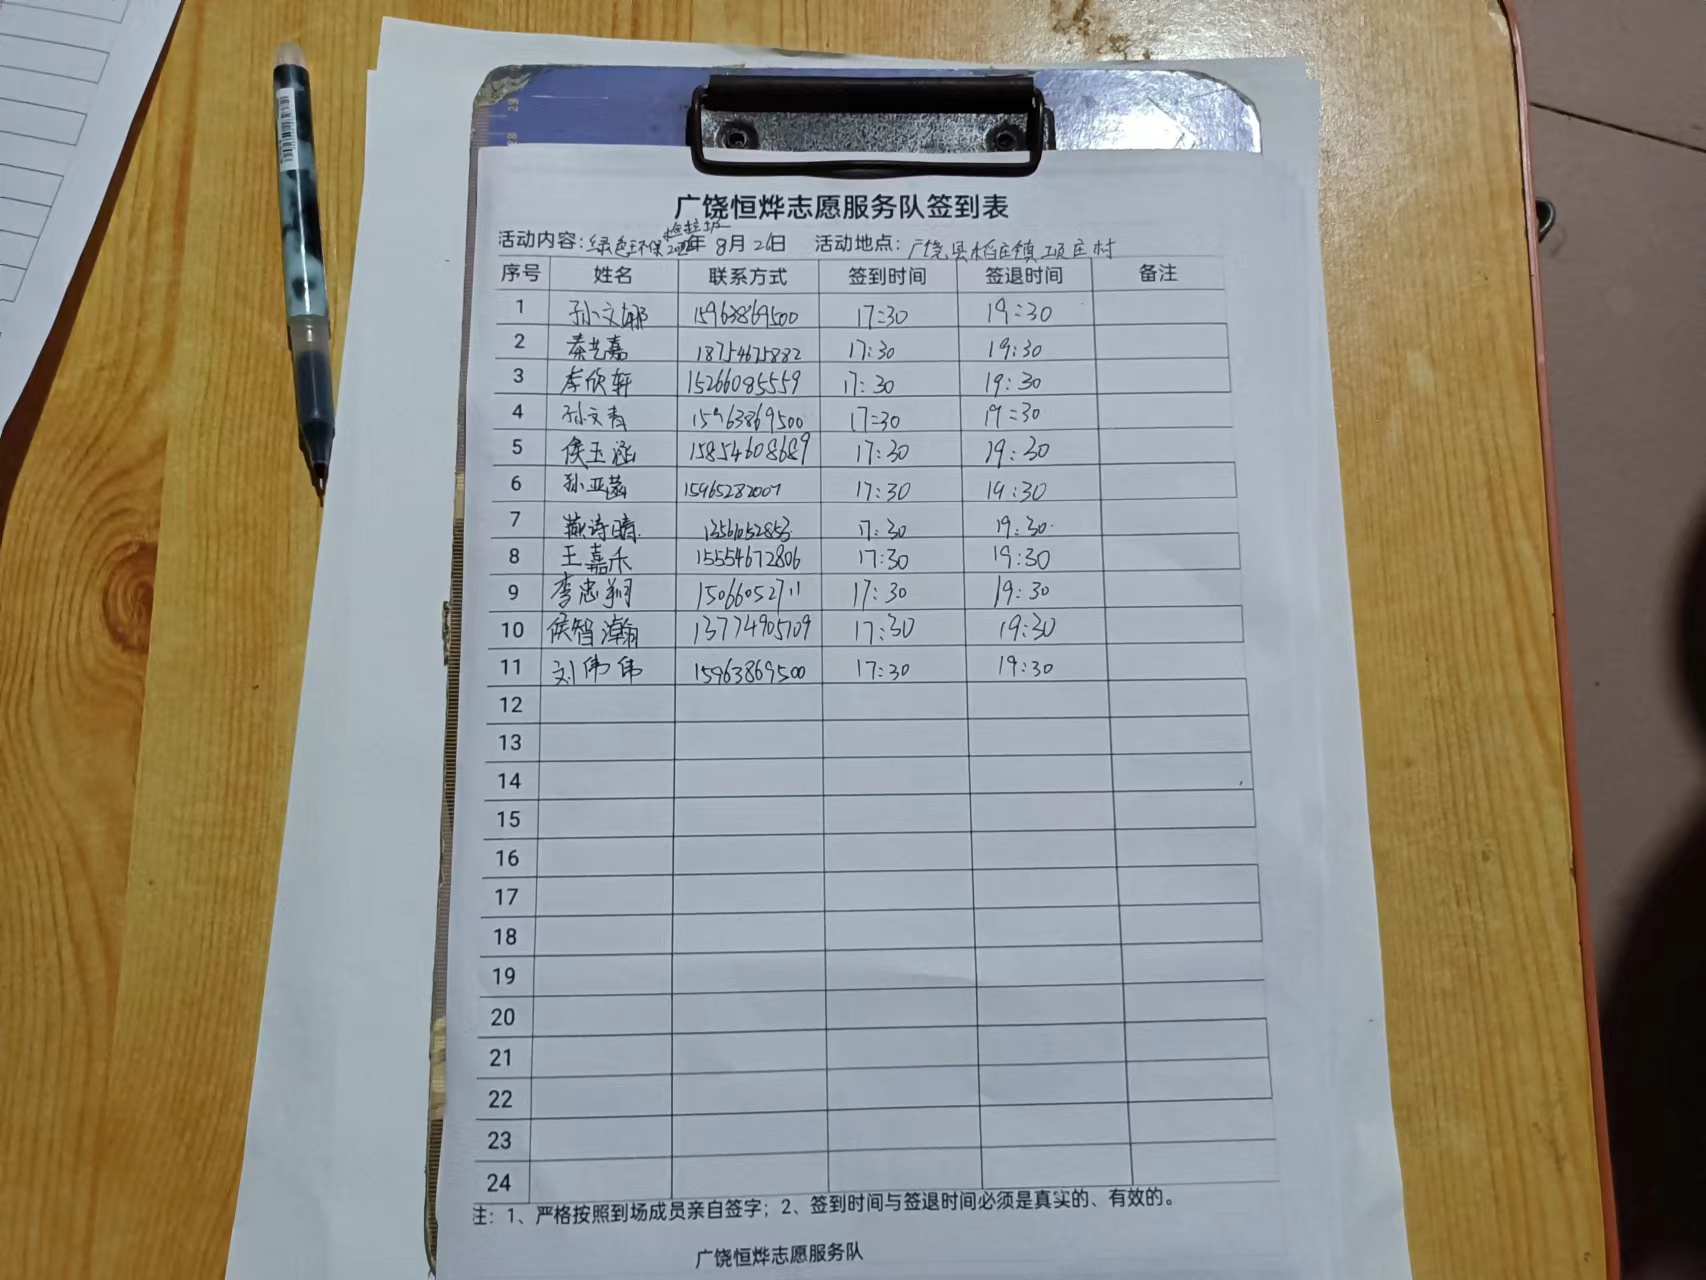 广饶恒烨志愿服务队签到表
捡垃圾
活动内容:绿色环保 年 8月 26日 活动地点:广饶县稻庄镇项庄村
序号 姓名 联系方式 签到时间 签退时间 备注
1 孙文娜 15963869500 17:30 19:30
2 秦艺嘉 18754675882 17:30 19:30
3 李欣轩 15266085559 17:30 19:30
4 孙文青 15963869500 17:30 19:30
5 侯玉涵 15854608689 17:30 19:30
6 孙亚菡 15965282007 17:30 19:30
7 燕诗晴 17:30 19:30
8 王嘉禾 15554672806 17:30 19:30
9 李忠翔 15066052711 17:30 19:30
10 侯智瀚 13774905709 17:30 19:30
11 刘伟伟 15963869500 17:30 19:30
12
13
14
15
16
17
18
19
20
21
22
23
24
注：1、严格按照到场成员亲自签字；2、签到时间与签退时间必须是真实的、有效的。
广饶恒烨志愿服务队